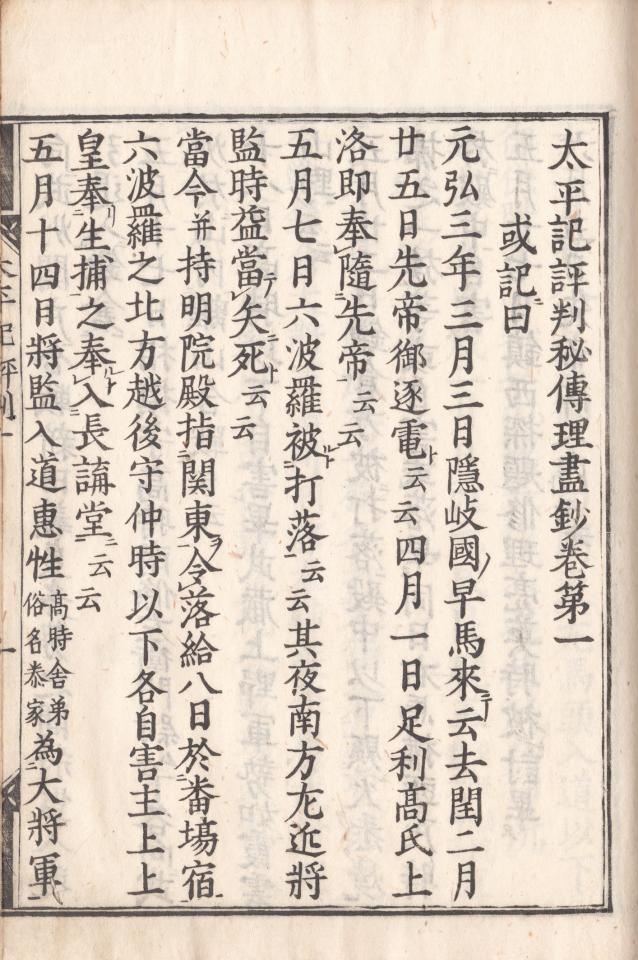 太平記評判秘傳理盡鈔巻第一
或記ニ曰
元弘三年三月三日隱岐國ノ早馬來テ云去閏二月
廿五日先帝御逐電ト云云四月一日足利髙氏上
洛即奉隨先帝ニ云云
五月七日六波羅被打落云云其夜南方左近將
監時益當テ矢ニ死ト云云
當今并持明院殿指関東ヲ令落給八日於畨場宿
六波羅之北方越後守仲時以下各自害主上上
皇奉生捕之奉入長講堂ニ云云
五月十四日將監入道惠性髙時舎弟俗名泰家為大將軍
太平記評判一
一